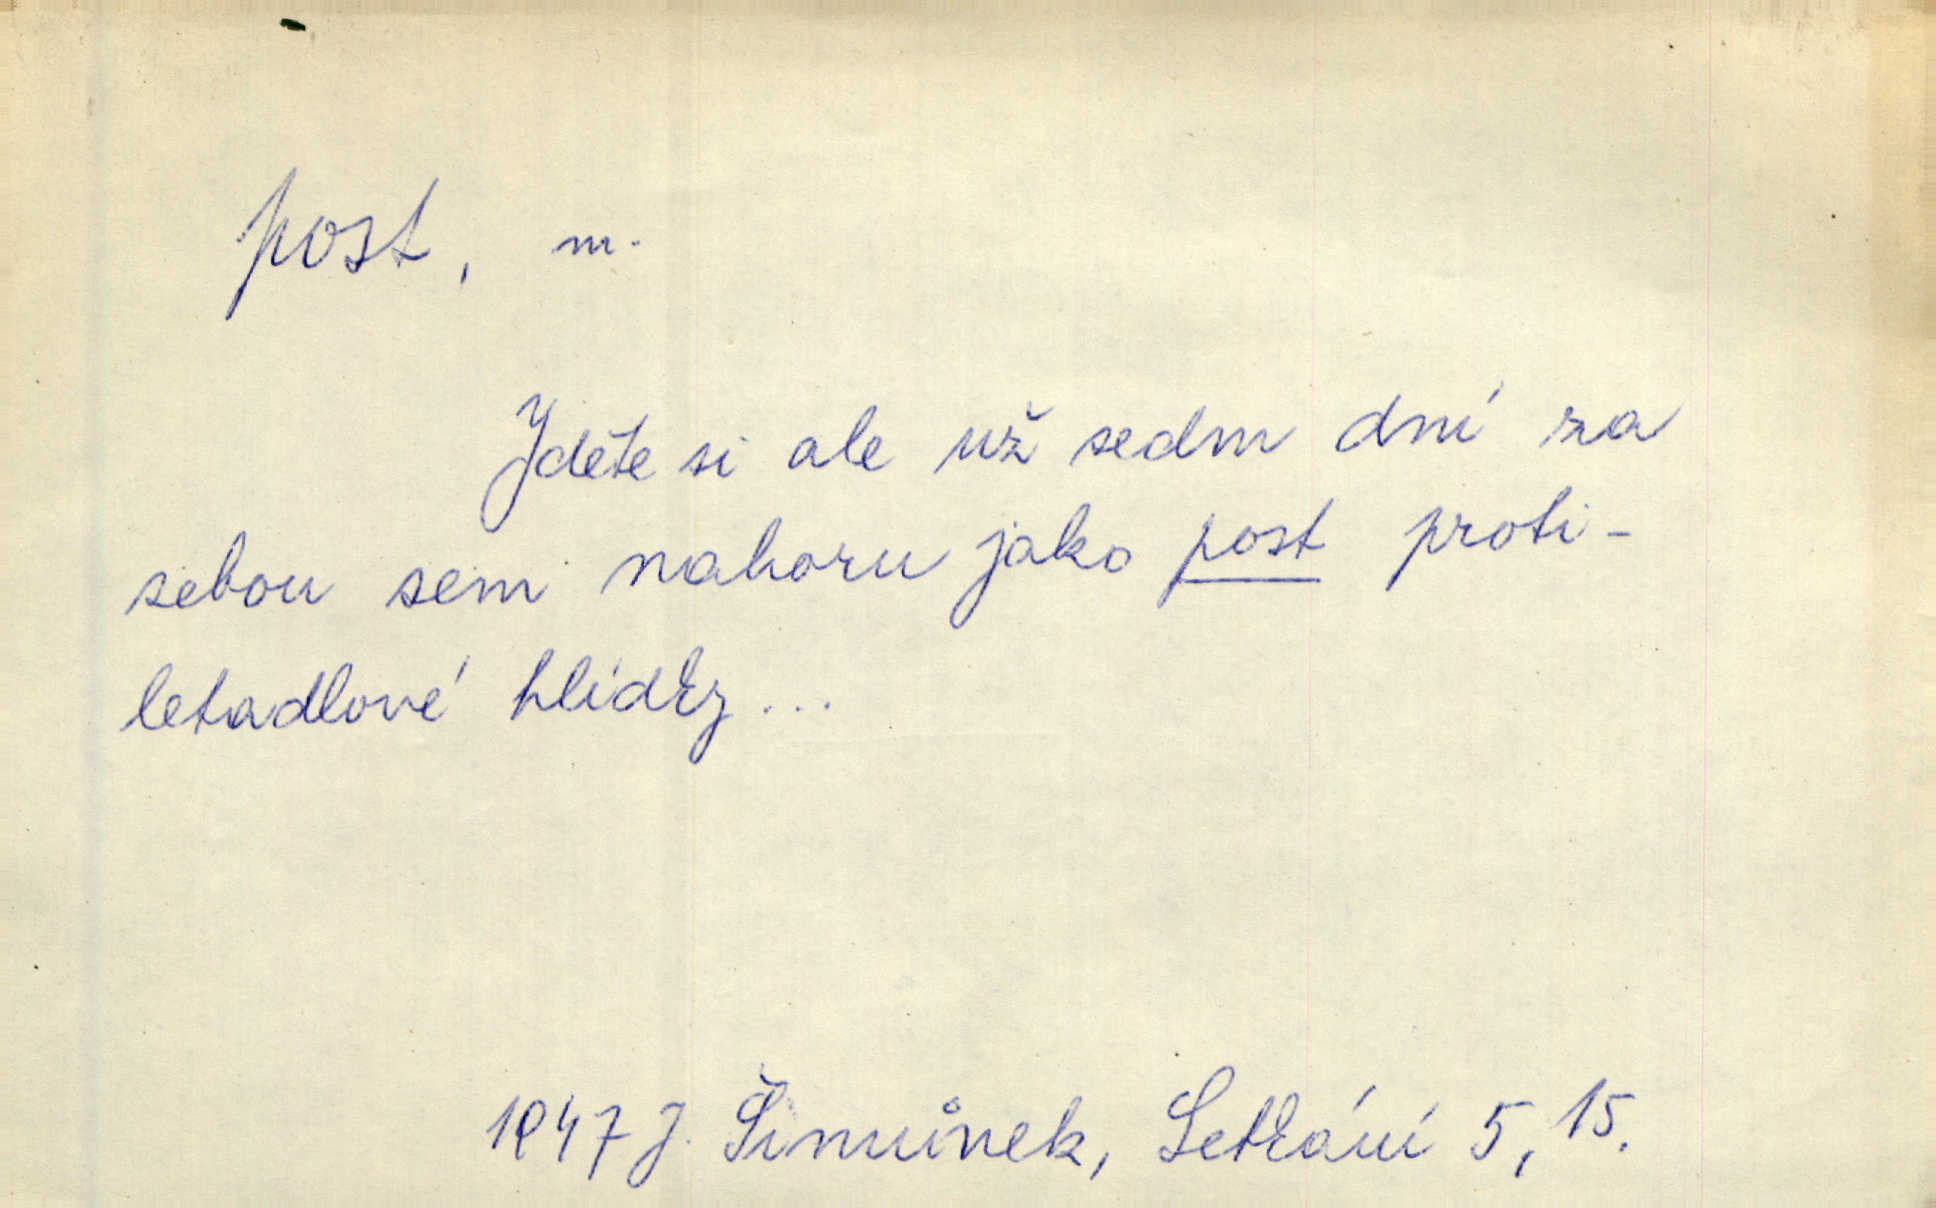 post, m.
Jdete si ale už sedm dní za
sebou sem nahoru jako post proti-
letadlové hlídky...
1947 J. Šimůnek, Setkání 5, 15.